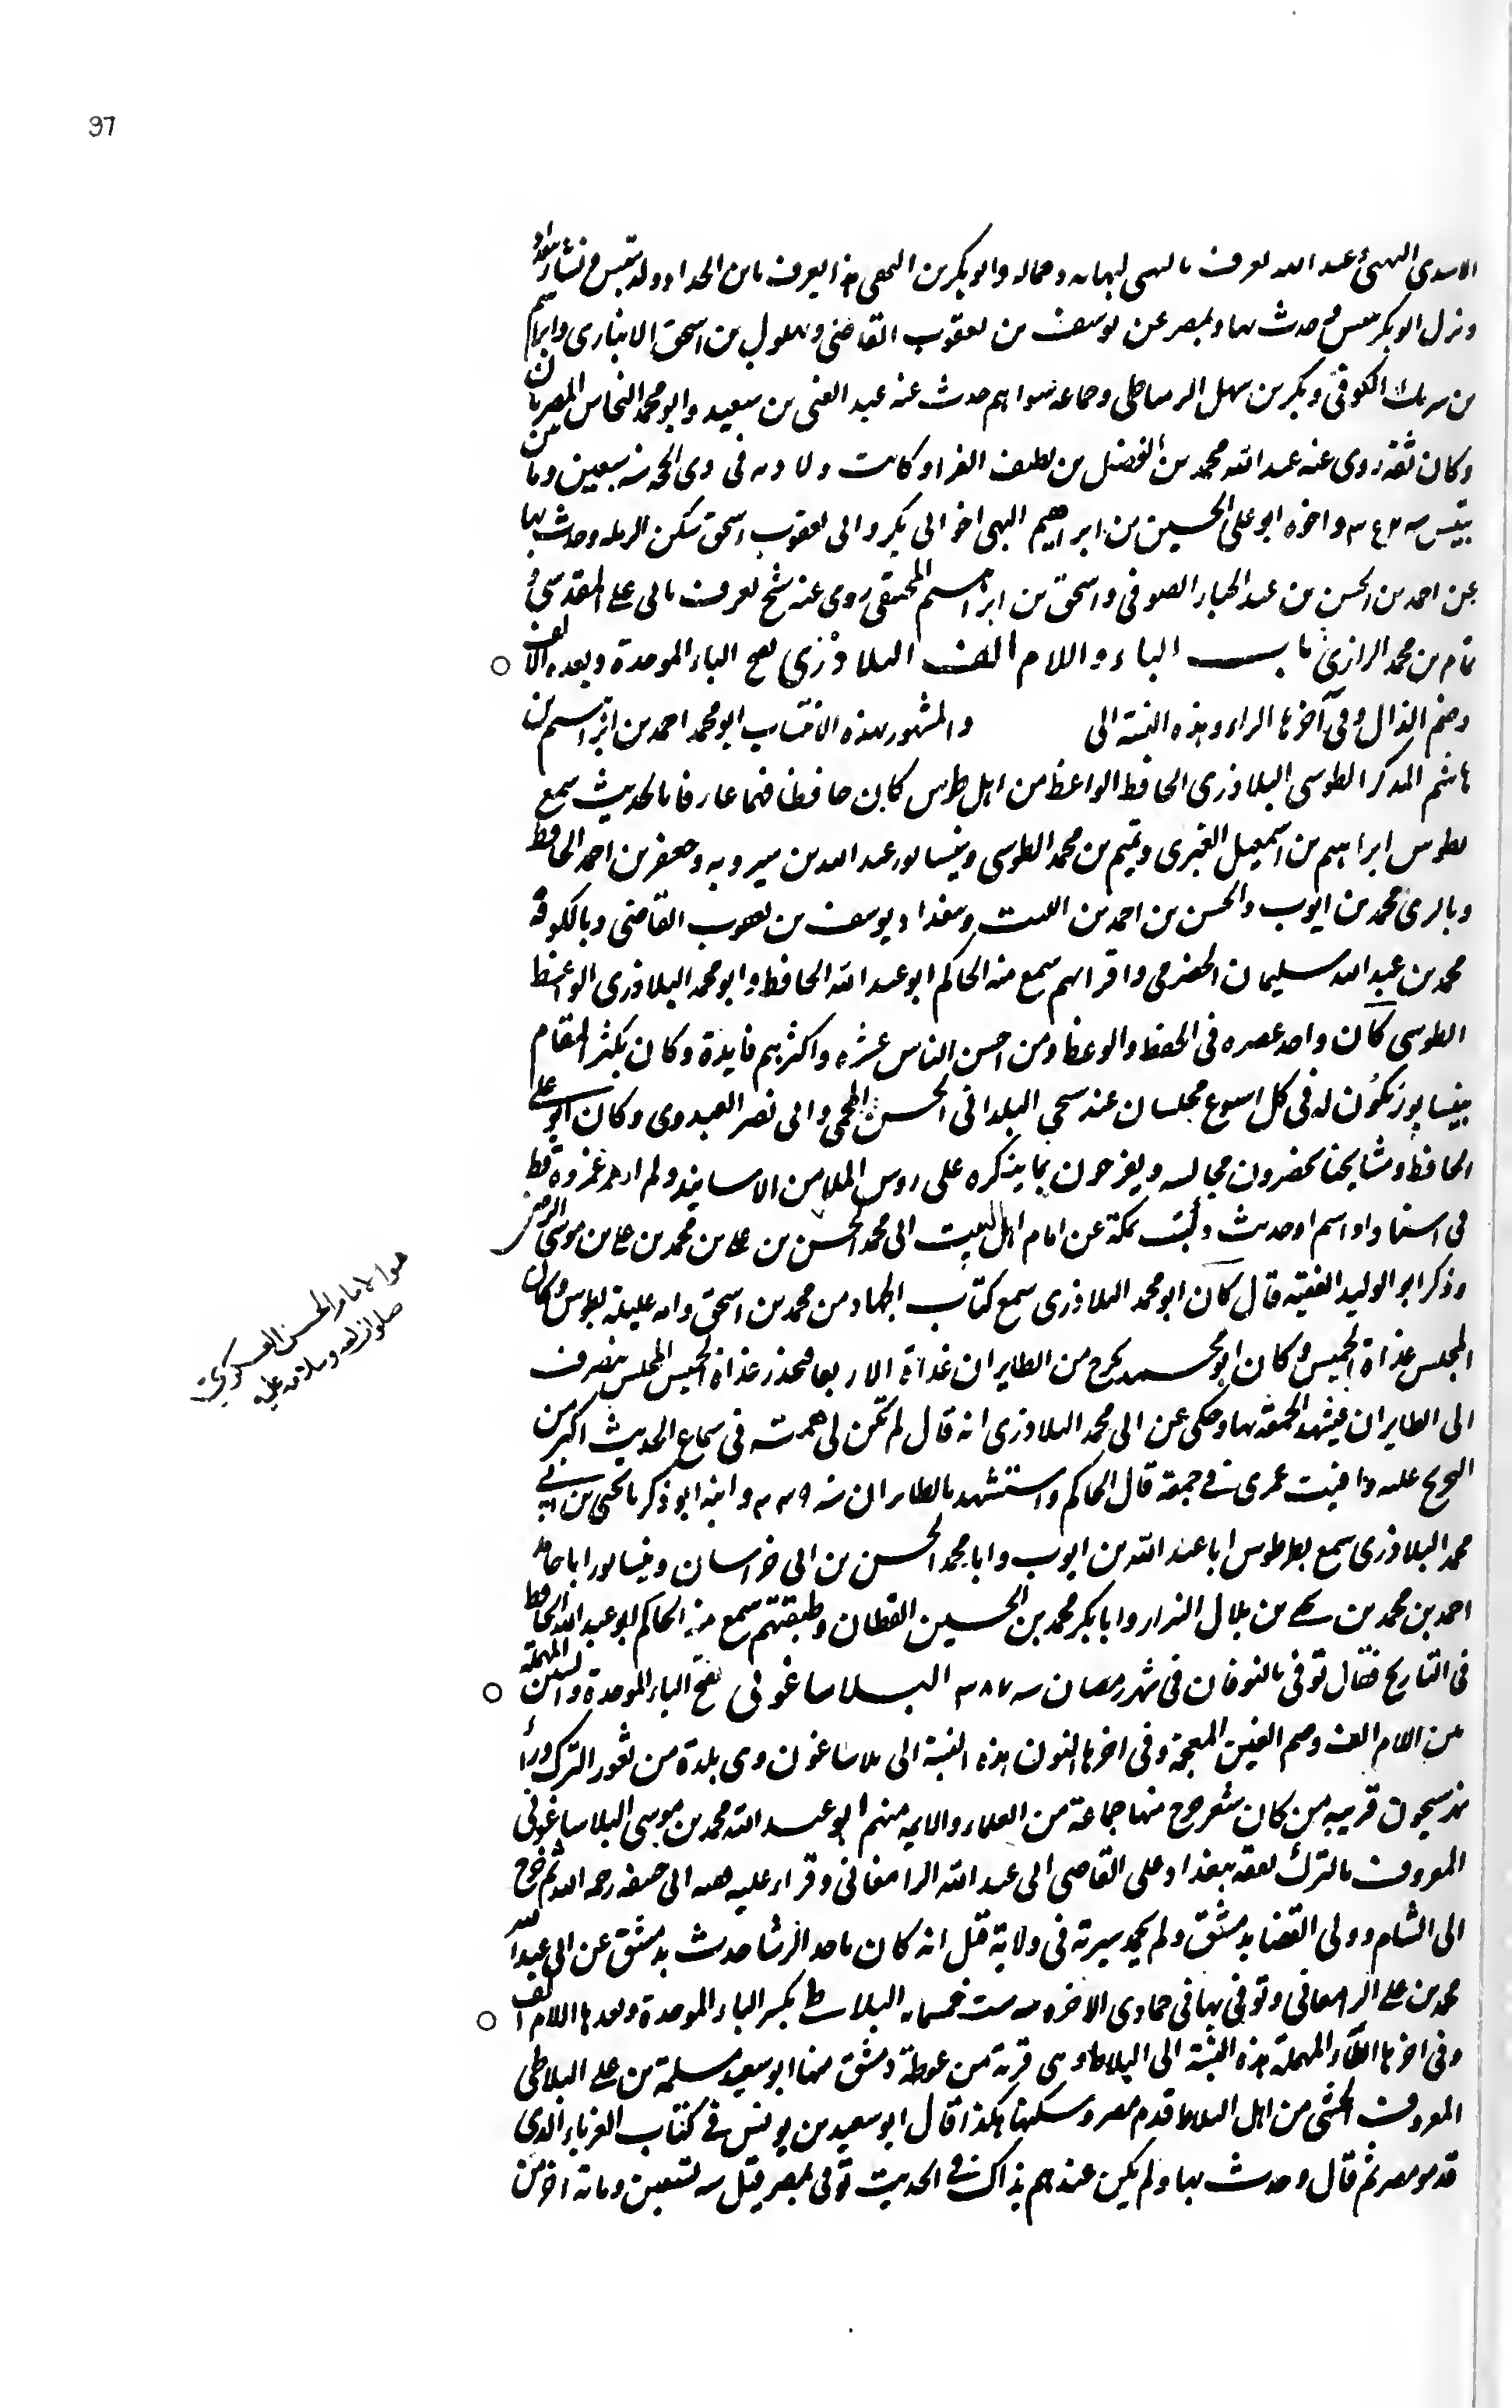 97
الاسدى البهى عبد الله يعرف بالبهى لبهائه وجماله وابو بكر بن البهى هذا يعرف بابن الحداد ولد بتنيس ونشا ببغداد
ونزل ابو بكر تنيس وحدث بها وبمصر عن يوسف بن يعقوب القاضى وبهلول بن اسحق الانبارى وابراهيم
بن شريك الكوفى وبكر بن سهل الدمياطى وجماعة سواهم حدث عنه عبد الغنى بن سعيد وابو محمد النحاس المصريان
وكان ثقة روى عنه عبد الله محمد بن الفضل بن نظيف الفراء وكانت ولادته فى ذى الحجة سنه سبعين وماتين
بتنيس سنه واخوه ابو على الحسين بن ابراهيم البهى اخو ابى بكر وابى يعقوب اسحق سكن الرمله وحدث بها
عن احمد بن الحسن بن عبد الجبار الصوفى واسحق بن ابراهيم المنجنيقى روى عنه شيخ يعرف بابى على المقدسى و
تمام بن محمد الرازى باب الباء واللام الف البلاذرى بفتح الباء الموحدة وبعده الالف
وضم الذال وفى آخرها الراء وهذه النسبة الى والمشهور بهذه الانتساب ابو محمد احمد بن ابراهيم بن
هاشم المذكر الطوسى البلاذرى الحافظ الواعظ من اهل طوس كان حافظا فهما عارفا بالحديث سمع
بطوس ابراهيم بن اسمعيل العنبرى وتميم بن محمد الطوسى وبنيسابور عبد الله بن شيرويه وجعفر بن احمد الحافظ
وبالرى محمد بن ايوب والحسن بن احمد بن الليث وببغداد يوسف بن يعقوب القاضى وبالكوفة
محمد بن عبد الله سليمان الحضرمى واقرانهم سمع منه الحاكم ابو عبد الله الحافظ وابو محمد البلاذرى الواعظ
الطوسى كان واحد عصره فى الحفظ والوعظ ومن احسن الناس عشره واكثرهم فايدة وكان يكثر المقام
بنيسابور يكون له فى كل اسبوع مجلسان عند شيخى البلد ابى الحسن المحمى وابى نصر العبدوى وكان ابو على
الحافظ ومشايخنا يحضرون مجالسه ويفرحون بما يذكره على روس الملا من الاسانيد ولم ارهم غمزوه قط
فى اسناد او اسم او حديث وكتب بمكة عن امام اهل البيت ابى محمد الحسن بن على بن محمد بن على بن موسى الرضى
وذكر ابو الوليد الفقيه قال كان ابو محمد البلاذرى سمع كتاب الجهاد من محمد بن اسحق وامه عليلة بطوس وكان
المجلس غداة الخميس وكان ابو محمد يخرج من الطابران غداة الاربعا فيحضر غداة الخميس المجلس ينصرف
الى الطابران فيشهد الجمعة بها وحكى عن ابى محمد البلاذرى انه قال لم تكن لى همة فى سماع الحديث اكبر من
التخريج عليه وافنيت عمرى فى جمعة قال الحاكم واستشهد بالطابران سنه ٣٣٩ وابنه ابو زكريا يحيى بن ابى
محمد البلاذرى سمع بطوس ابا عبد الله بن ايوب وابا محمد الحسن بن ابى خراسان وبنيسابور ابا حامد
احمد بن محمد بن يحيى بن بلال البزار وابا بكر محمد بن الحسين القطان وطبقتهم سمع منه الحاكم ابو عبد الله الحافظ
فى التاريخ فقال توفى بالنوقان فى شهر رمضان سنه ٣٨٧ البلاساغونى بفتح الباء الموحدة والسين المهملة
بين اللام الف وضم الغين المعجمة وفى اخرها النون هذه النسبة الى بلاساغون وهى بلدة من ثغور الترك وراء
نهر سيحون قريبه من كاشغر خرج منها جماعة من العلماء والايمه منهم ابو عبد الله محمد بن موسى البلاساغونى
المعروف بالترك تفقه ببغداد على القاضى ابى عبد الله الدامغانى وقراء عليه فقه ابى حنيفه رحمه الله ثم خرج
الى الشام وولى القضا بدمشق ولم يحمد سيرته فى ولايته قيل انه كان ياخذ الرشا حدث بدمشق عن ابى عبد الله
محمد بن على الدامغانى وتوفى بها فى جمادى الاخره سنه ست خمسمايه البلاطى بكسر الباء الموحدة وبعدها اللام الف
وفى اخرها الطاء المهملة هذه النسبة الى البلاط وهى قرية من غوطة دمشق منها ابو سعيد مسلمة بن على البلاطى
المعروف الخشنى من اهل البلاط قدم مصر وسكنها هكذا قال ابو سعيد بن يونس فى كتاب الغرباء الذى
قدموا مصر ثم قال وحدث بها ولم يكن عندهم بذاك فى الحديث توفى بمصر قبل سنه تسعين ومائة اخر من
هو الامام الحسن العسكرى
صلوات الله وسلامه عليه